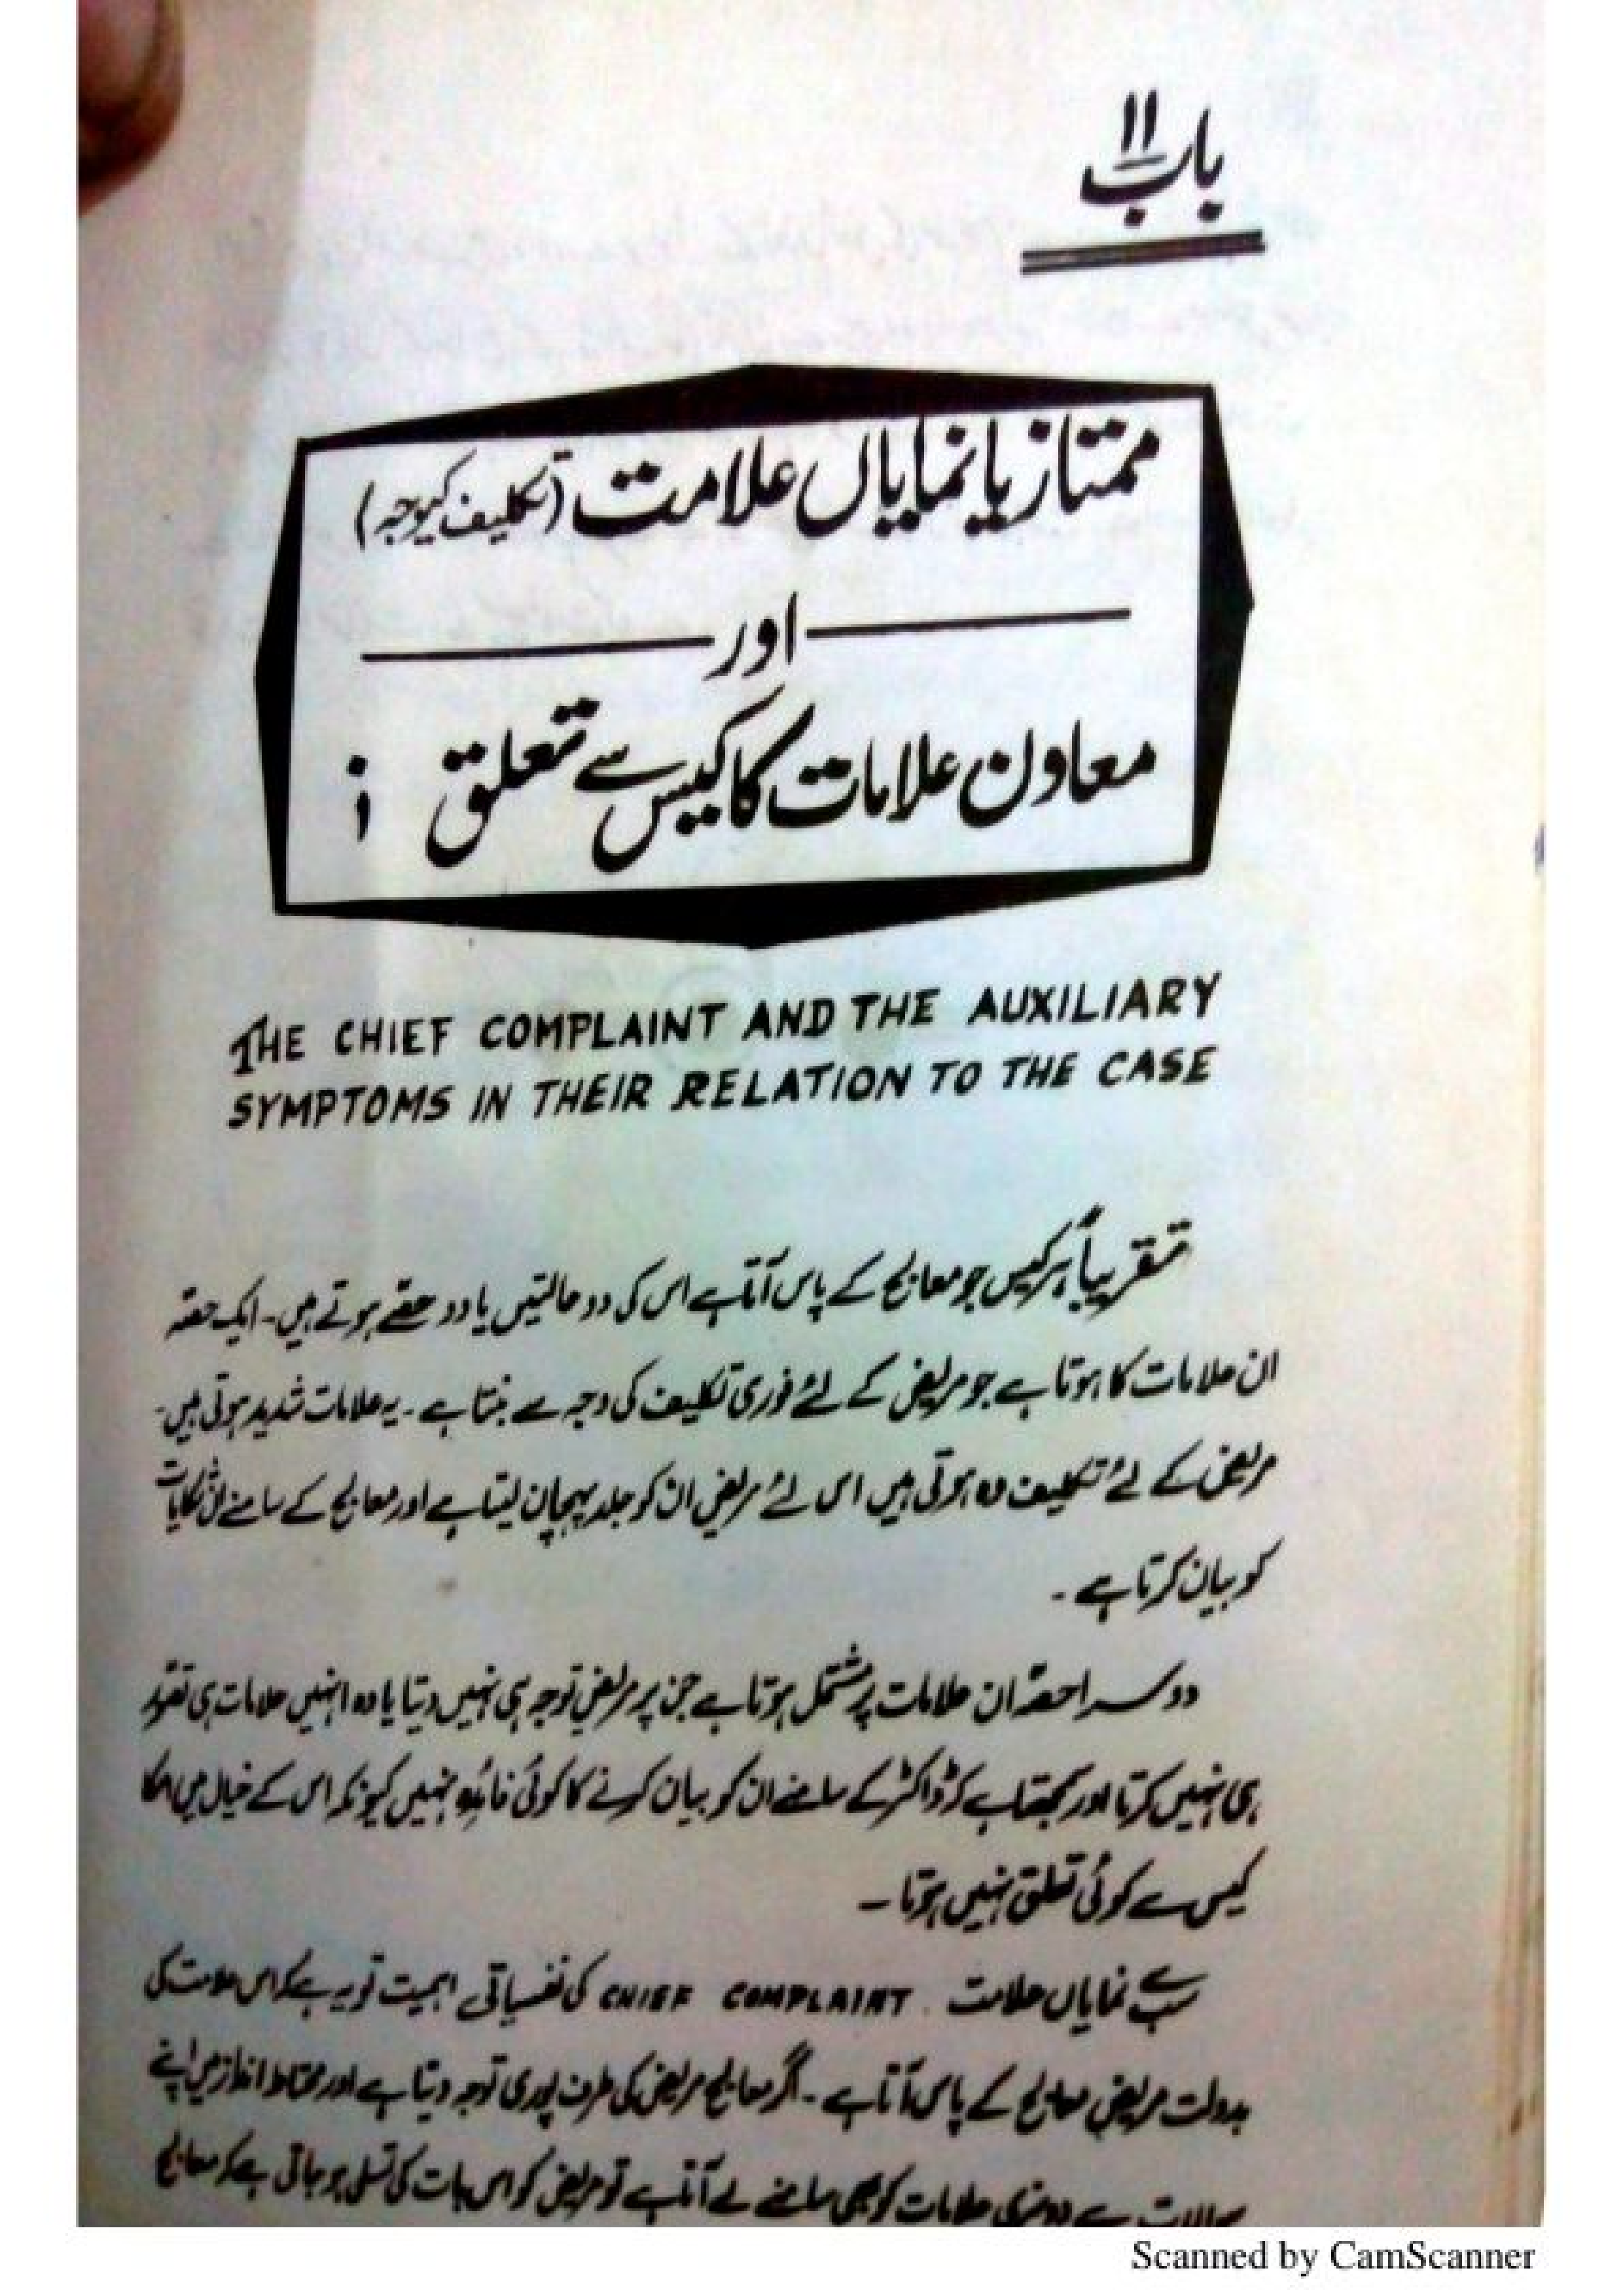 باب ۱۱
ممتاز یا نمایاں علامت (تکلیف کیوجہ)
اور
معاون علامات کا کیس سے تعلق :
THE CHIEF COMPLAINT AND THE AUXILIARY
SYMPTOMS IN THEIR RELATION TO THE CASE
تقریباً ہر کیس جو معالج کے پاس آتا ہے اس کی دو حالتیں یا دو حصّے ہوتے ہیں۔ ایک حصّہ
ان علامات کا ہوتا ہے جو مریض کے لئے فوری تکلیف کی وجہ سے بنتا ہے۔ یہ علامات شدید ہوتی ہیں۔
مریض کے لئے تکلیف دہ ہوتی ہیں اس لئے مریض ان کو جلد پہچان لیتا ہے اور معالج کے سامنے ان شکایات
کو بیان کرتا ہے۔
دوسرا حصّہ ان علامات پر مشتمل ہوتا ہے جن پر مریض توجہ ہی نہیں دیتا یا وہ انہیں علامات ہی تصّور
ہی نہیں کرتا اور سمجھتا ہے کہ ڈاکٹر کے سامنے ان کو بیان کرنے کا کوئی فائدہ نہیں کیونکہ اس کے خیال میں انکا
کیس سے کوئی تعلق نہیں ہوتا۔
سب سے نمایاں علامت CHIEF COMPLAINT کی نفسیاتی اہمیت تو یہ ہے کہ اس علامت کی
بدولت مریض معالج کے پاس آتا ہے۔ اگر معالج مریض کی طرف پوری توجہ دیتا ہے اور محتاط انداز میں اپنے
سوالات سے دوسری علامات کو بھی سامنے لے آتا ہے تو مریض کو اس بات کی تسلی ہو جاتی ہے کہ معالج
Scanned by CamScanner